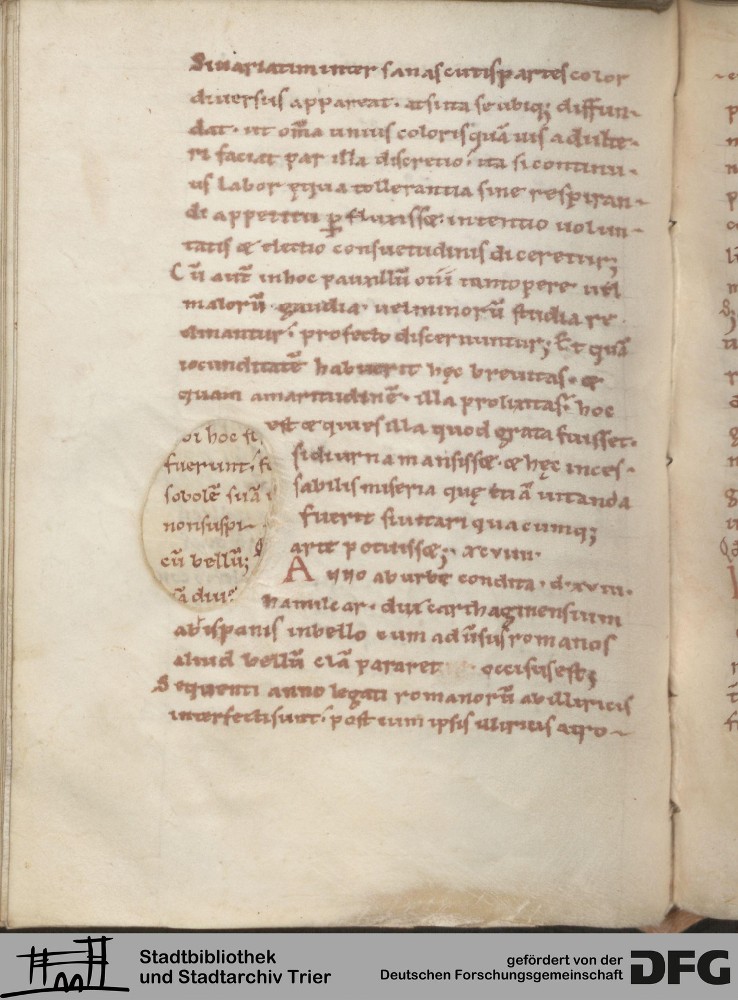 Siuariatim inter sanas cutis partes color
diuersus appareat · at si ita se ubiq; diffun-
dat · ut om̅a unius coloris quā uis adulte-
ri faciat par illa discretio · ita si continu-
us labor ęqua tollerantia sine respiran-
di appetitu ꝑfluxisset · intentio uolun-
tatis & electio consuetudinis diceretur;
Cū aut̅ in hoc pauxillū otii tantopere uel
maiorū gaudia · uel minorū studia re
amantur · profecto discernuntur; Et quā
iocunditatē habuerit hęc breuitas · &
quam amaritudinē · illa prolixitas · hoc
est & quiuis illa quod grata fuisset ·
si diurna mansisset · & hęc inces-
sabilis miseria quę etiā uitanda
fuerit si uitari quacumq;
arte potuisset; · xcvııı ·
oi hoc st
fuerunt · fi
sobolē suā
non suspi-
cū bellū;
ā diu
Anno ab urbe condita · d · xvııı ·
hamilcar · dux carthaginensium
ab ispanis in bello cum adusus romanos
aliud bellū clā pararet occisus est;
Sequenti anno legati romanorū ab illiricis
interfecti sunt · post cum ipsis illiricis atro-
Stadtbibliothek
und Stadtarchiv Trier
gefördert von der
Deutschen Forschungsgemeinschaft
DFG